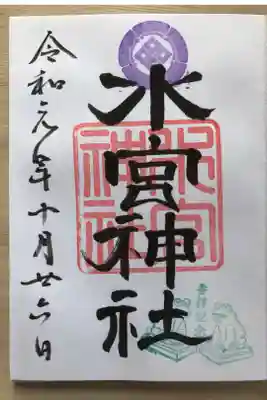 水宮神社
令和元年十月廿六日
水宮
神社
参拝記念